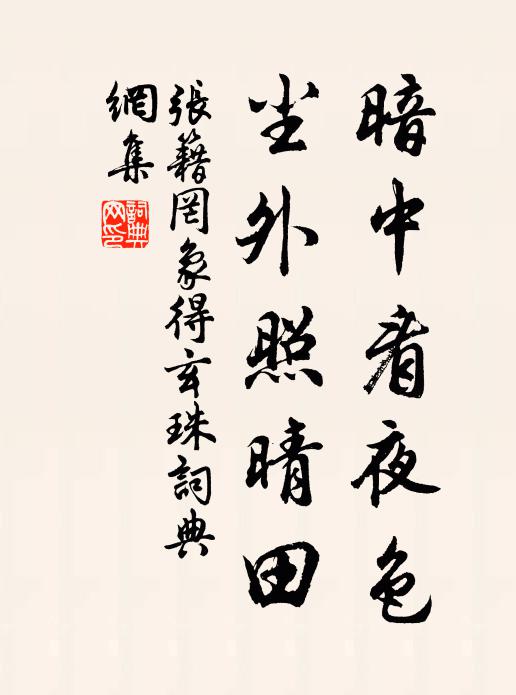 暗中看夜色
尘外照晴田
張籍罔象得玄珠詞典
網集
詞典
网印